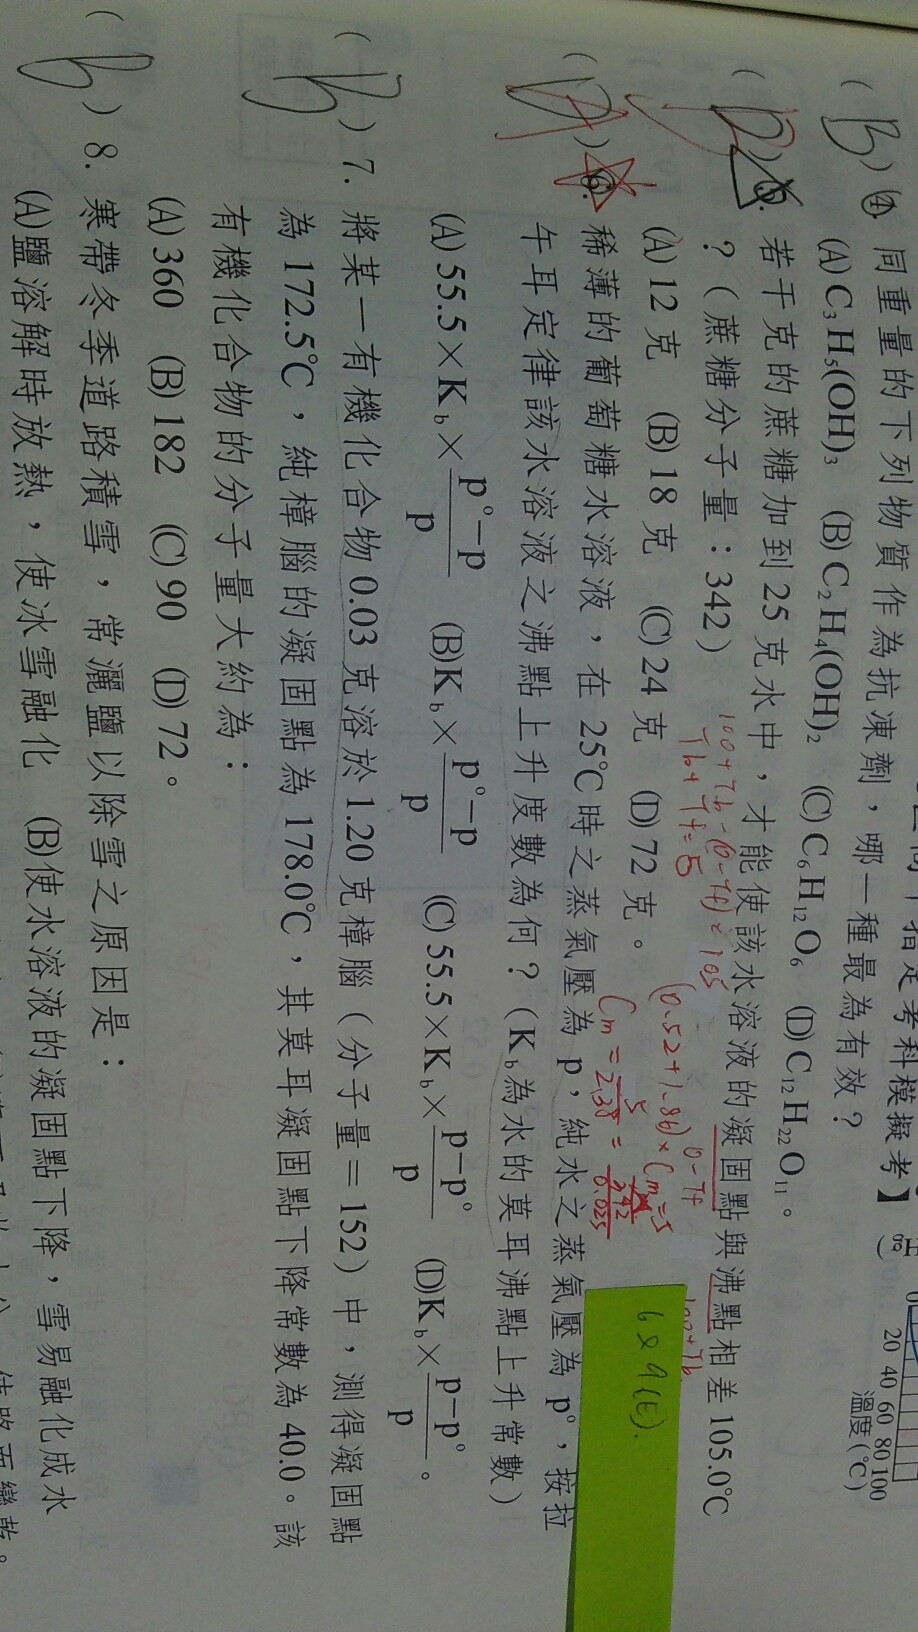 指定考科模擬考】
20 40 60 80 100
溫度(℃)
(B) 4. 同重量的下列物質作為抗凍劑，哪一種最為有效？
(A) C₃H₅(OH)₃ (B) C₂H₄(OH)₂ (C) C₆H₁₂O₆ (D) C₁₂H₂₂O₁₁。
若干克的蔗糖加到 25 克水中，才能使該水溶液的凝固點與沸點相差 105.0℃
？（蔗糖分子量：342）
100+Tb-(0-Tf)=105
Tb+Tf=5
0-Tf
100+Tb
(A) 12 克 (B) 18 克 (C) 24 克 (D) 72 克。
(0.52+1.86)×Cm=5
6. 稀薄的葡萄糖水溶液，在 25℃時之蒸氣壓為 p，純水之蒸氣壓為 p°，按拉
午耳定律該水溶液之沸點上升度數為何？（K_b為水的莫耳沸點上升常數）
(A) 55.5×K_b×(p°−p)/p (B) K_b×(p°−p)/p (C) 55.5×K_b×(p−p°)/p (D) K_b×(p−p°)/p。
(B) 7. 將某一有機化合物 0.03 克溶於 1.20 克樟腦（分子量＝152）中，測得凝固點
為 172.5℃，純樟腦的凝固點為 178.0℃，其莫耳凝固點下降常數為 40.0。該
有機化合物的分子量大約為：
(A) 360 (B) 182 (C) 90 (D) 72。
(B) 8. 寒帶冬季道路積雪，常灑鹽以除雪之原因是：
(A)鹽溶解時放熱，使冰雪融化 (B)使水溶液的凝固點下降，雪易融化成水